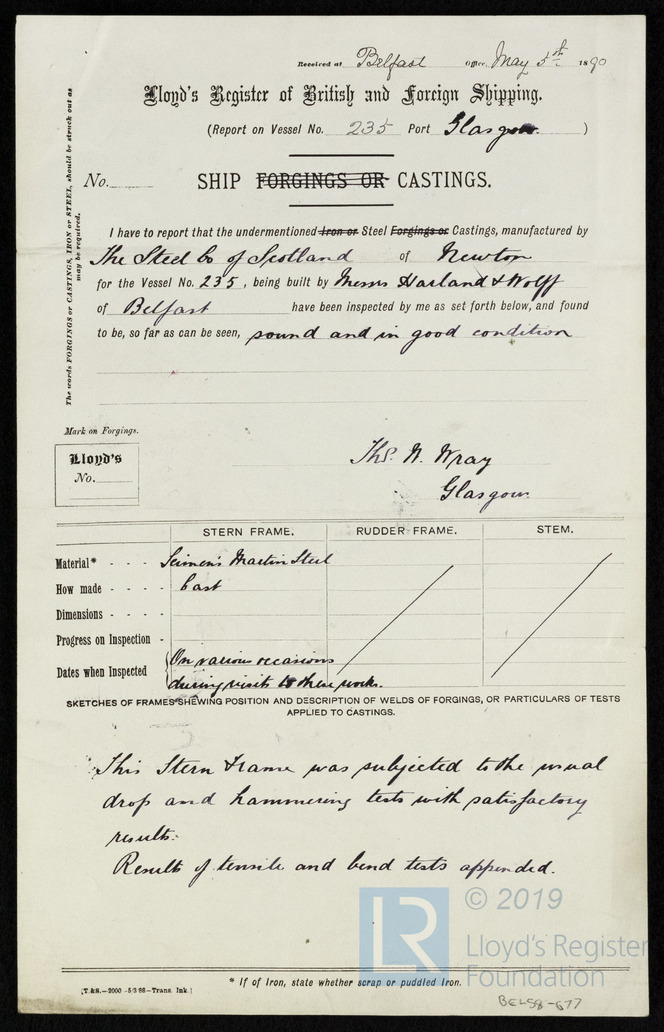 Received at Belfast Office. May 5th 1890
Lloyd's Register of British and Foreign Shipping.
(Report on Vessel No. 235 Port Glasgow. )
No.
SHIP FORGINGS OR CASTINGS.
The words FORGINGS or CASTINGS, IRON or STEEL, should be struck out as
may be required.
I have to report that the undermentioned Iron or Steel Forgings or Castings, manufactured by
The Steel Co of Scotland of Newton
for the Vessel No. 235, being built by Messrs Harland & Wolff
of Belfast have been inspected by me as set forth below, and found
to be, so far as can be seen, sound and in good condition
Mark on Forgings.
Lloyd's
No.
ThS. W. Wray
Glasgow.
STERN FRAME. RUDDER FRAME. STEM.
Material* - - - - Seimen's Martin Steel
How made - - - - Cast
Dimensions - - - -
Progress on Inspection -
Dates when Inspected { On various occasions
during visits to these works.
SKETCHES OF FRAMES SHEWING POSITION AND DESCRIPTION OF WELDS OF FORGINGS, OR PARTICULARS OF TESTS
APPLIED TO CASTINGS.
This Stern Frame was subjected to the usual
drop and hammering tests with satisfactory
results.
Results of tensile and bend tests appended.
LR © 2019
Lloyd's Register
Foundation
* If of Iron, state whether scrap or puddled Iron.
[T.&S.—2000—5/3/88—Trans. Ink.]
BEL58-677